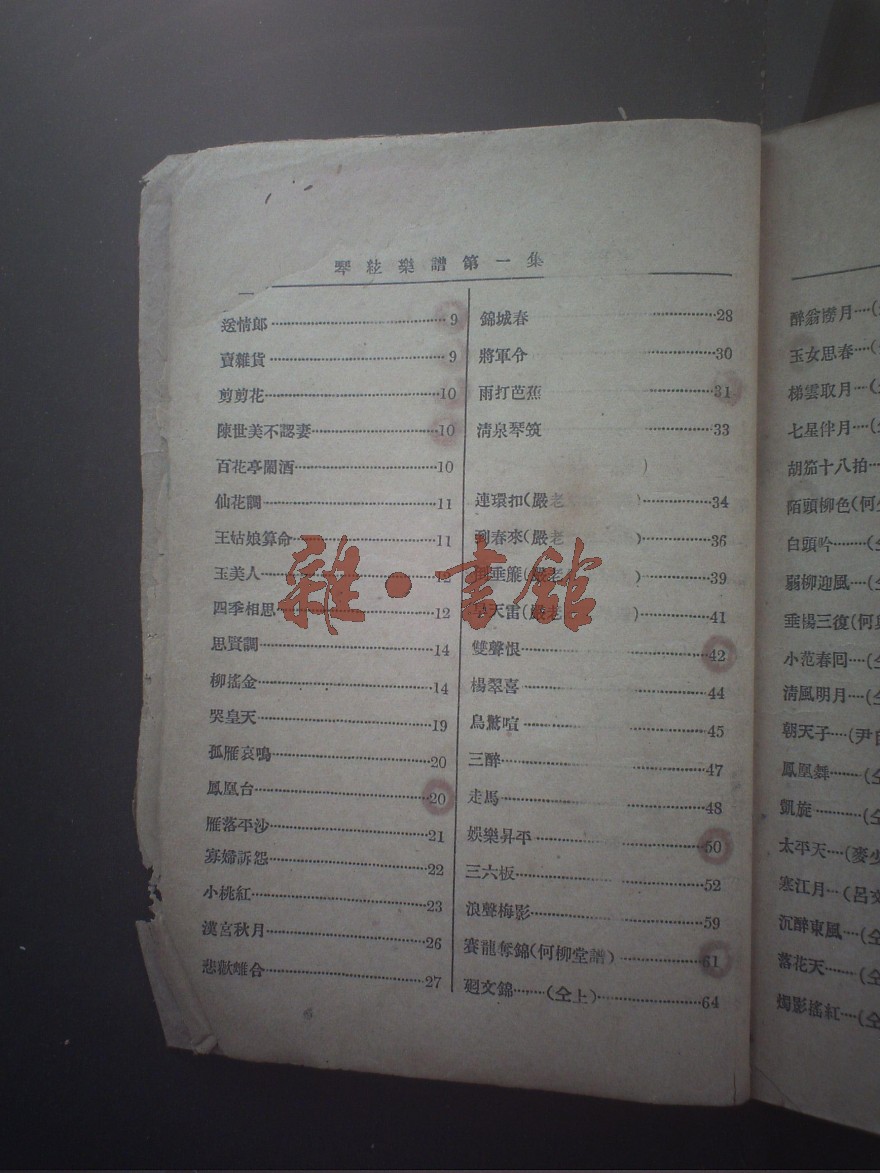 琴絃樂譜第一集
一
送情郎……9
賣雜貨……9
剪剪花……10
陳世美不認妻……10
百花亭鬧酒……10
仙花調……11
王姑娘算命……11
玉美人……12
四季相思……12
思賢調……14
柳搖金……14
哭皇天……19
孤雁哀鳴……20
鳳凰台……20
雁落平沙……21
寡婦訴怨……22
小桃紅……23
漢宮秋月……26
悲歡離合……27
錦城春……28
將軍令……30
雨打芭蕉……31
清泉琴筑……33
)
連環扣(嚴老)……34
到春來(嚴老)……36
倒垂簾(嚴老)……39
旱天雷(嚴老)……41
雙聲恨……42
楊翠喜……44
鳥驚喧……45
三醉……47
走馬……48
娛樂昇平……50
三六板……52
浪聲梅影……59
賽龍奪錦(何柳堂譜)……61
廻文錦……(仝上)……64
醉翁撈月…(
玉女思春…(
梯雲取月…(
七星伴月…(
胡笳十八拍…
陌頭柳色(何
白頭吟……(仝
弱柳迎風…(仝
垂楊三復(何
小范春回…(仝
清風明月…(仝
朝天子…(尹自
鳳凰舞……(仝
凱旋………(仝
太平天…(麥少
寒江月…(呂文
沉醉東風…(仝
落花天……(仝
燭影搖紅…(仝
雜·書館